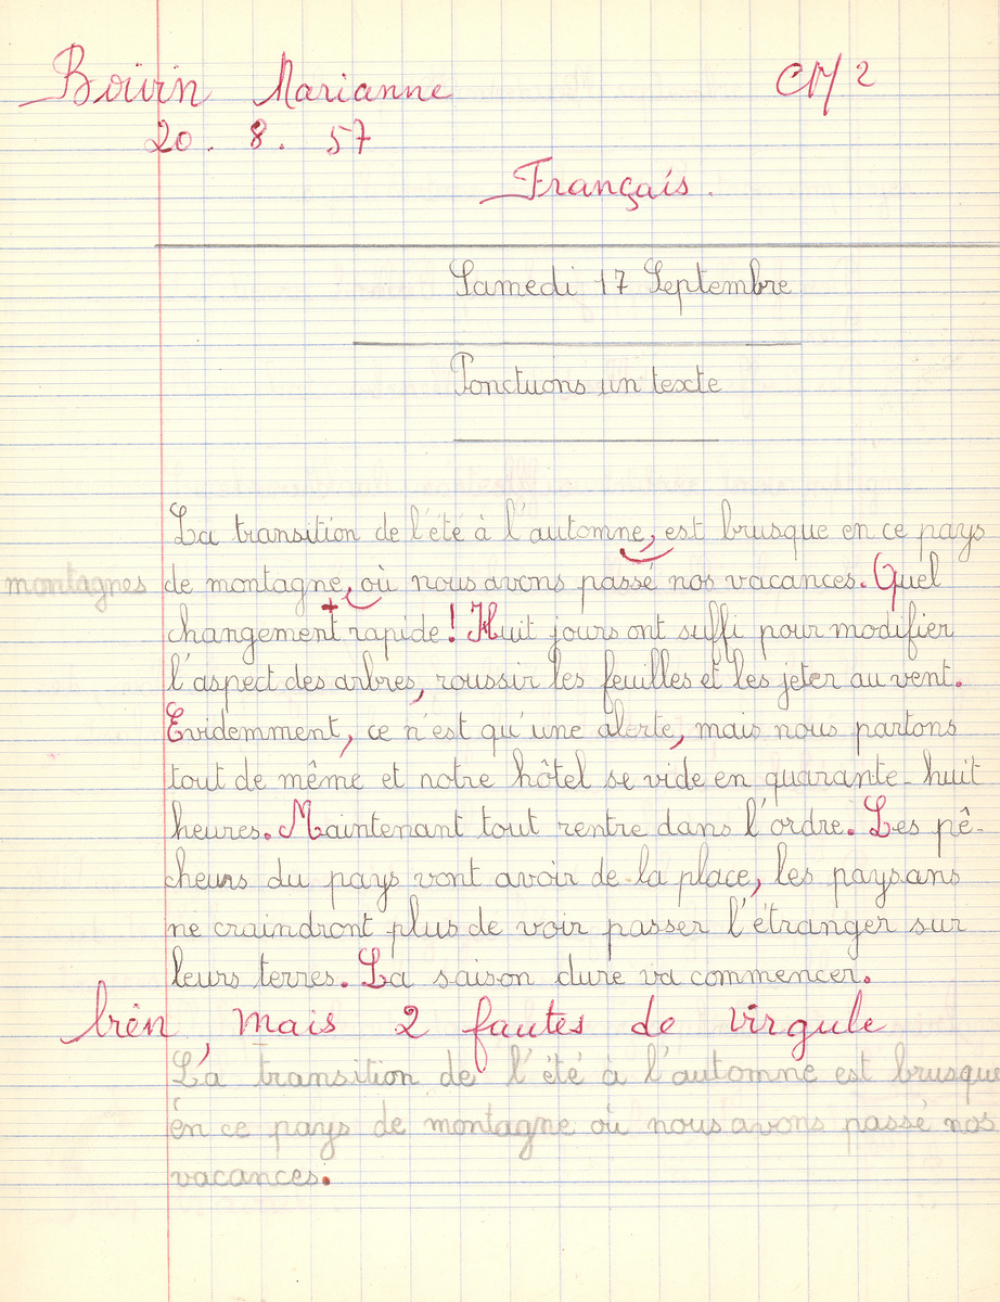 Boivin Marianne CM2
20. 8. 57
Français.
Samedi 17 Septembre
Ponctuons un texte
La transition de l'été à l'automne, est brusque en ce pays
montagnes de montagne, où nous avons passé nos vacances. Quel
changement rapide! Huit jours ont suffi pour modifier
l'aspect des arbres, roussir les feuilles et les jeter au vent.
Evidemment, ce n'est qu'une alerte, mais nous partons
tout de même et notre hôtel se vide en quarante-huit
heures. Maintenant tout rentre dans l'ordre. Les pê-
cheurs du pays vont avoir de la place, les paysans
ne craindront plus de voir passer l'étranger sur
leurs terres. La saison dure va commencer.
bien, mais 2 fautes de virgule
La transition de l'été à l'automne est brusque
en ce pays de montagne où nous avons passé nos
vacances.